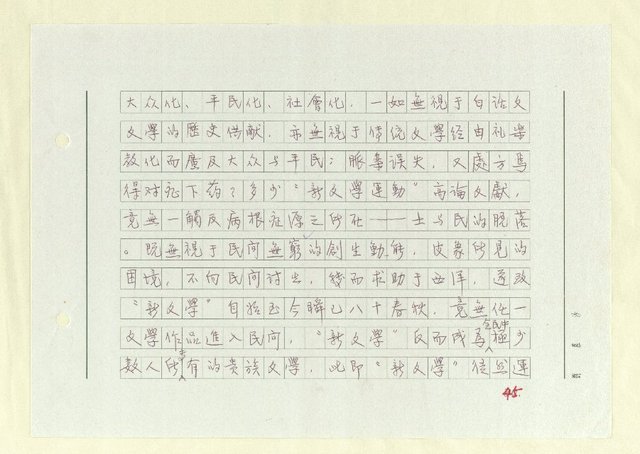 大众化、平民化、社會化，一如無視于白话文
文學的歷史供献，亦無視于傳统文學经由礼樂
教化而廣及大众与平民；脈毒误失，又處方焉
得对症下药？多少“新文學運動”高論文獻，
竟無一觸及病根症源之所在——士与民的脱落
。既無視于民间無窮的創生動能，皮象所見的
困境，不向民间讨出，转而求助于西洋，遂致
“新文學”自始至今瞬已八十春秋，竟無任一
文學作品進入民间，“新文學”反而成為全民中極少
数人所專有的贵族文學，此即“新文學”徒然運
45.